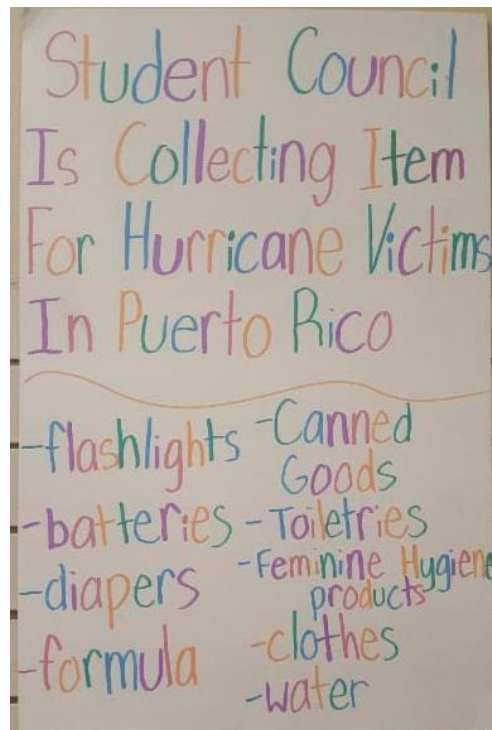 Student Council
Is Collecting Item
For Hurricane Victims
In Puerto Rico
-flashlights
-batteries
-diapers
-formula
-Canned
Goods
-Toiletries
-Feminine Hygiene
products
-clothes
-water